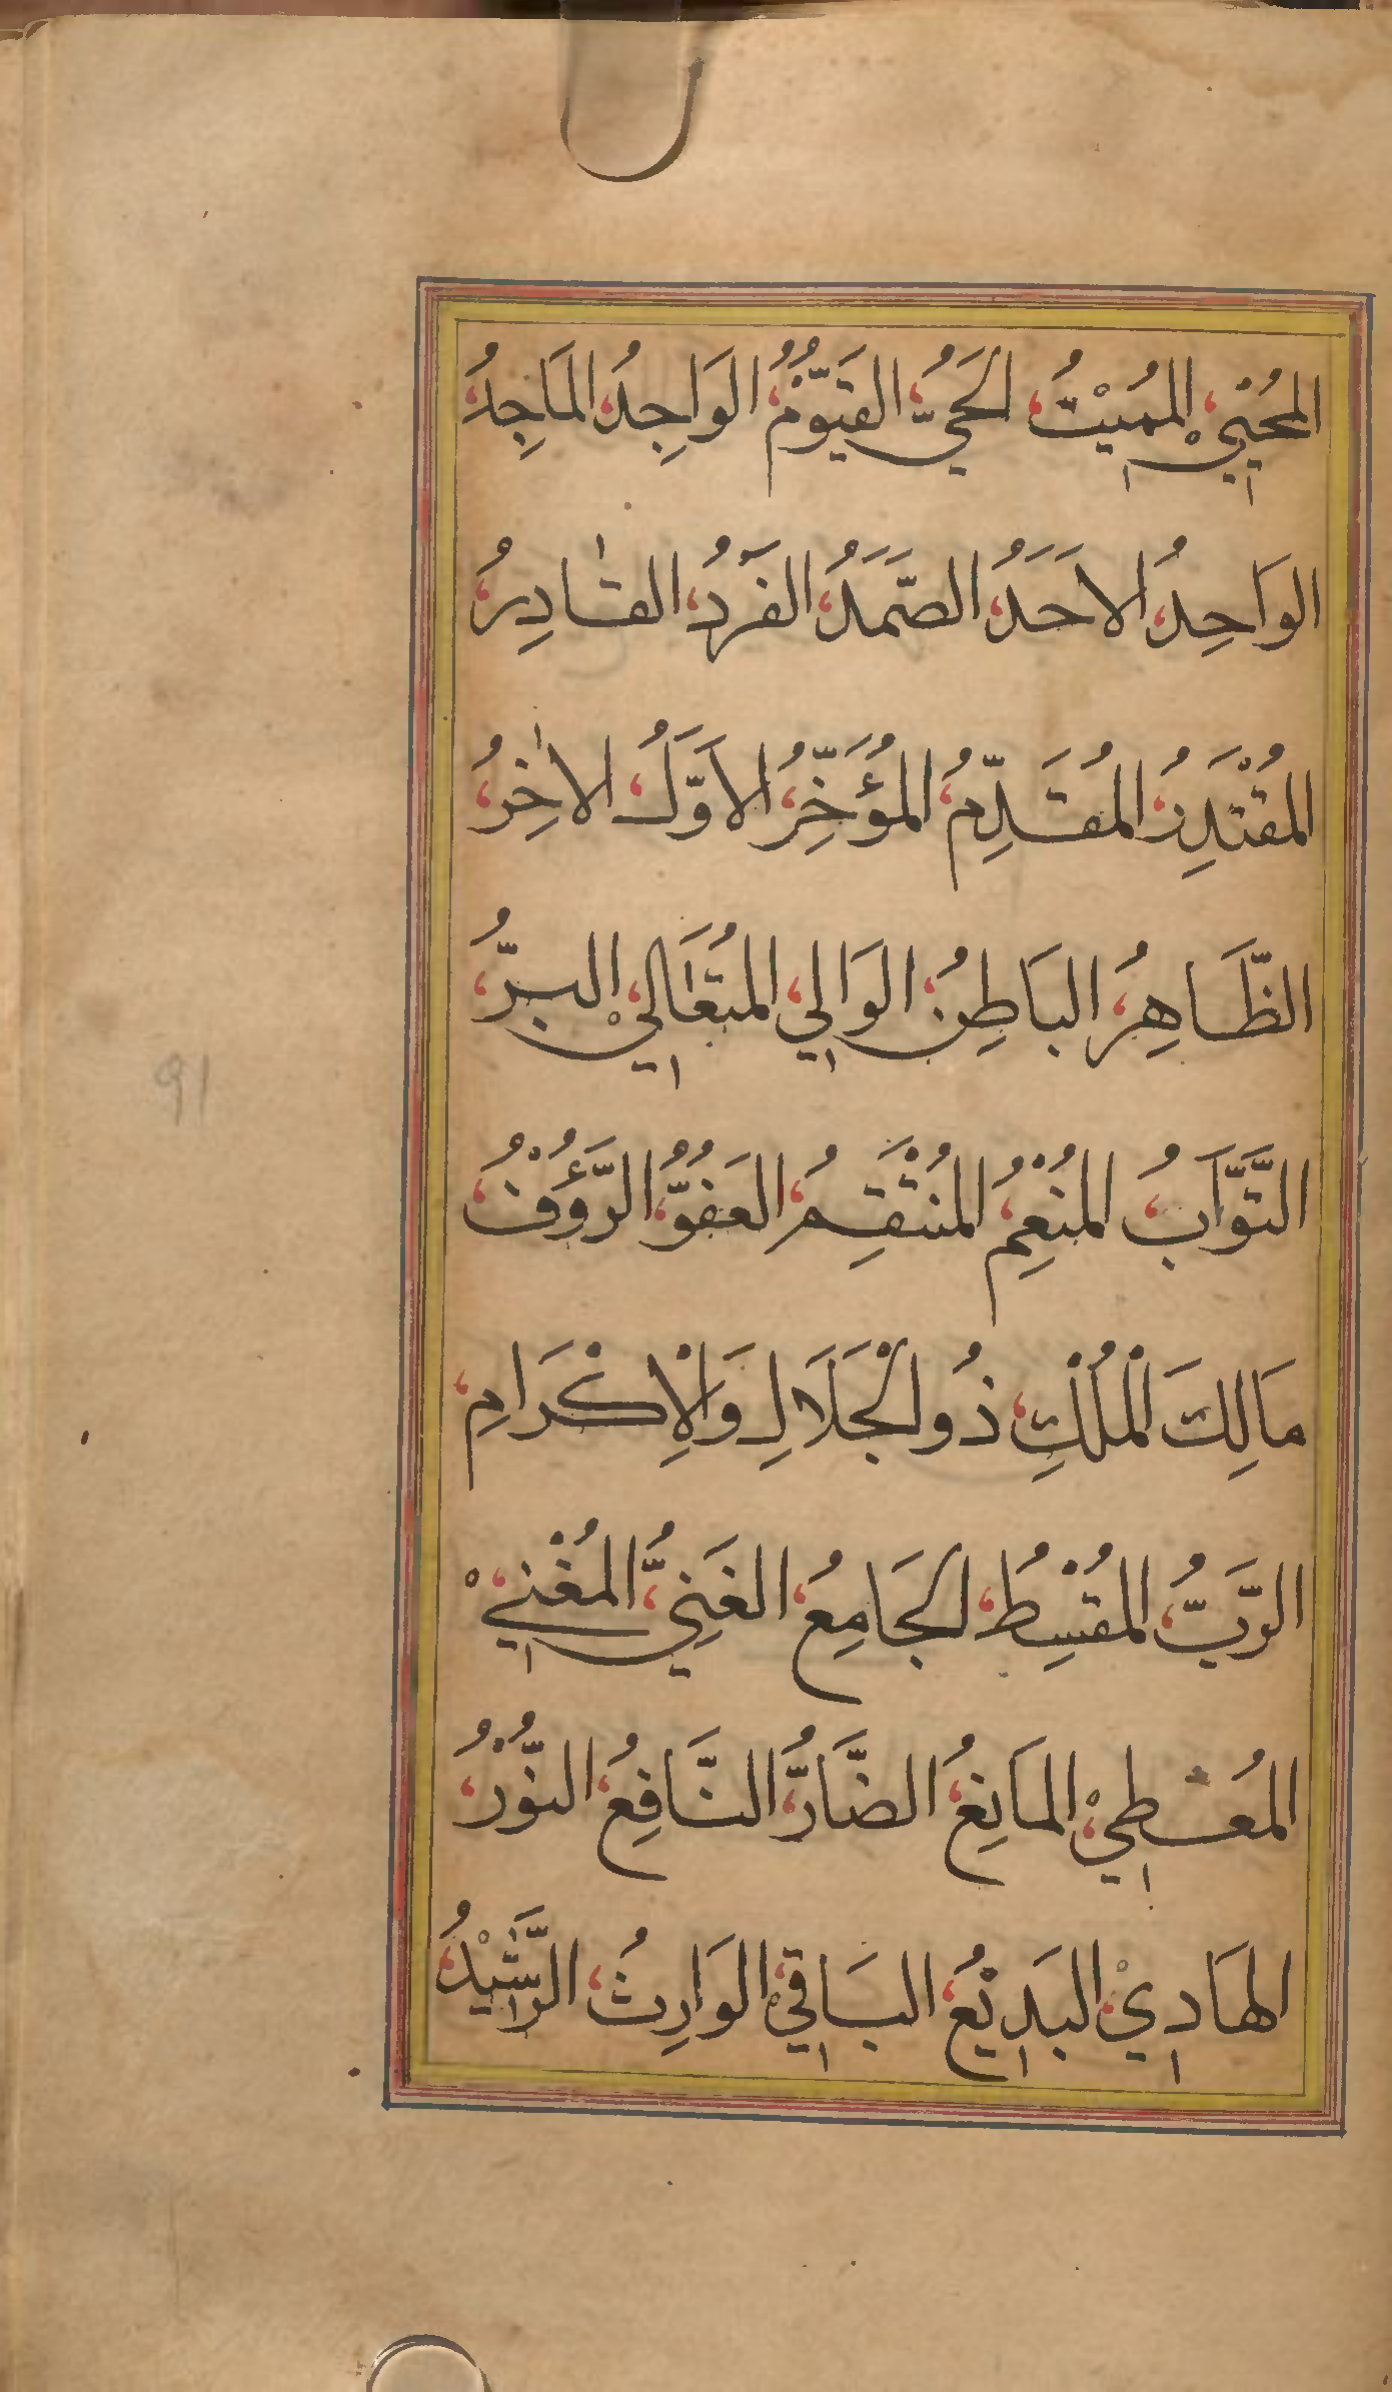 المُحْيِيْ المُمِيْتُ الحَيُّ القَيُّوْمُ الوَاجِدُ المَاجِدُ
الوَاحِدُ الاَحَدُ الصَّمَدُ الفَرْدُ القَادِرُ
المُقْتَدِرُ المُقَدِّمُ المُؤَخِّرُ الاَوَّلُ الاٰخِرُ
الظَّاهِرُ البَاطِنُ الوَالِي المُتَعَالِيْ البَرُّ
التَّوَّابُ المُنْعِمُ المُنْتَقِمُ العَفُوُّ الرَّؤُوْفُ
مَالِكَ الْمُلْكِ ذُو الْجَلَالِ وَالْاِكْرَامِ
الرَّبُّ المُقْسِطُ الجَامِعُ الغَنِيُّ المُغْنِيْ
المُعْطِيْ المَانِعُ الضَّارُّ النَّافِعُ النُّوْرُ
الهَادِيْ البَدِيْعُ البَاقِيْ الوَارِثُ الرَّشِيْدُ
91